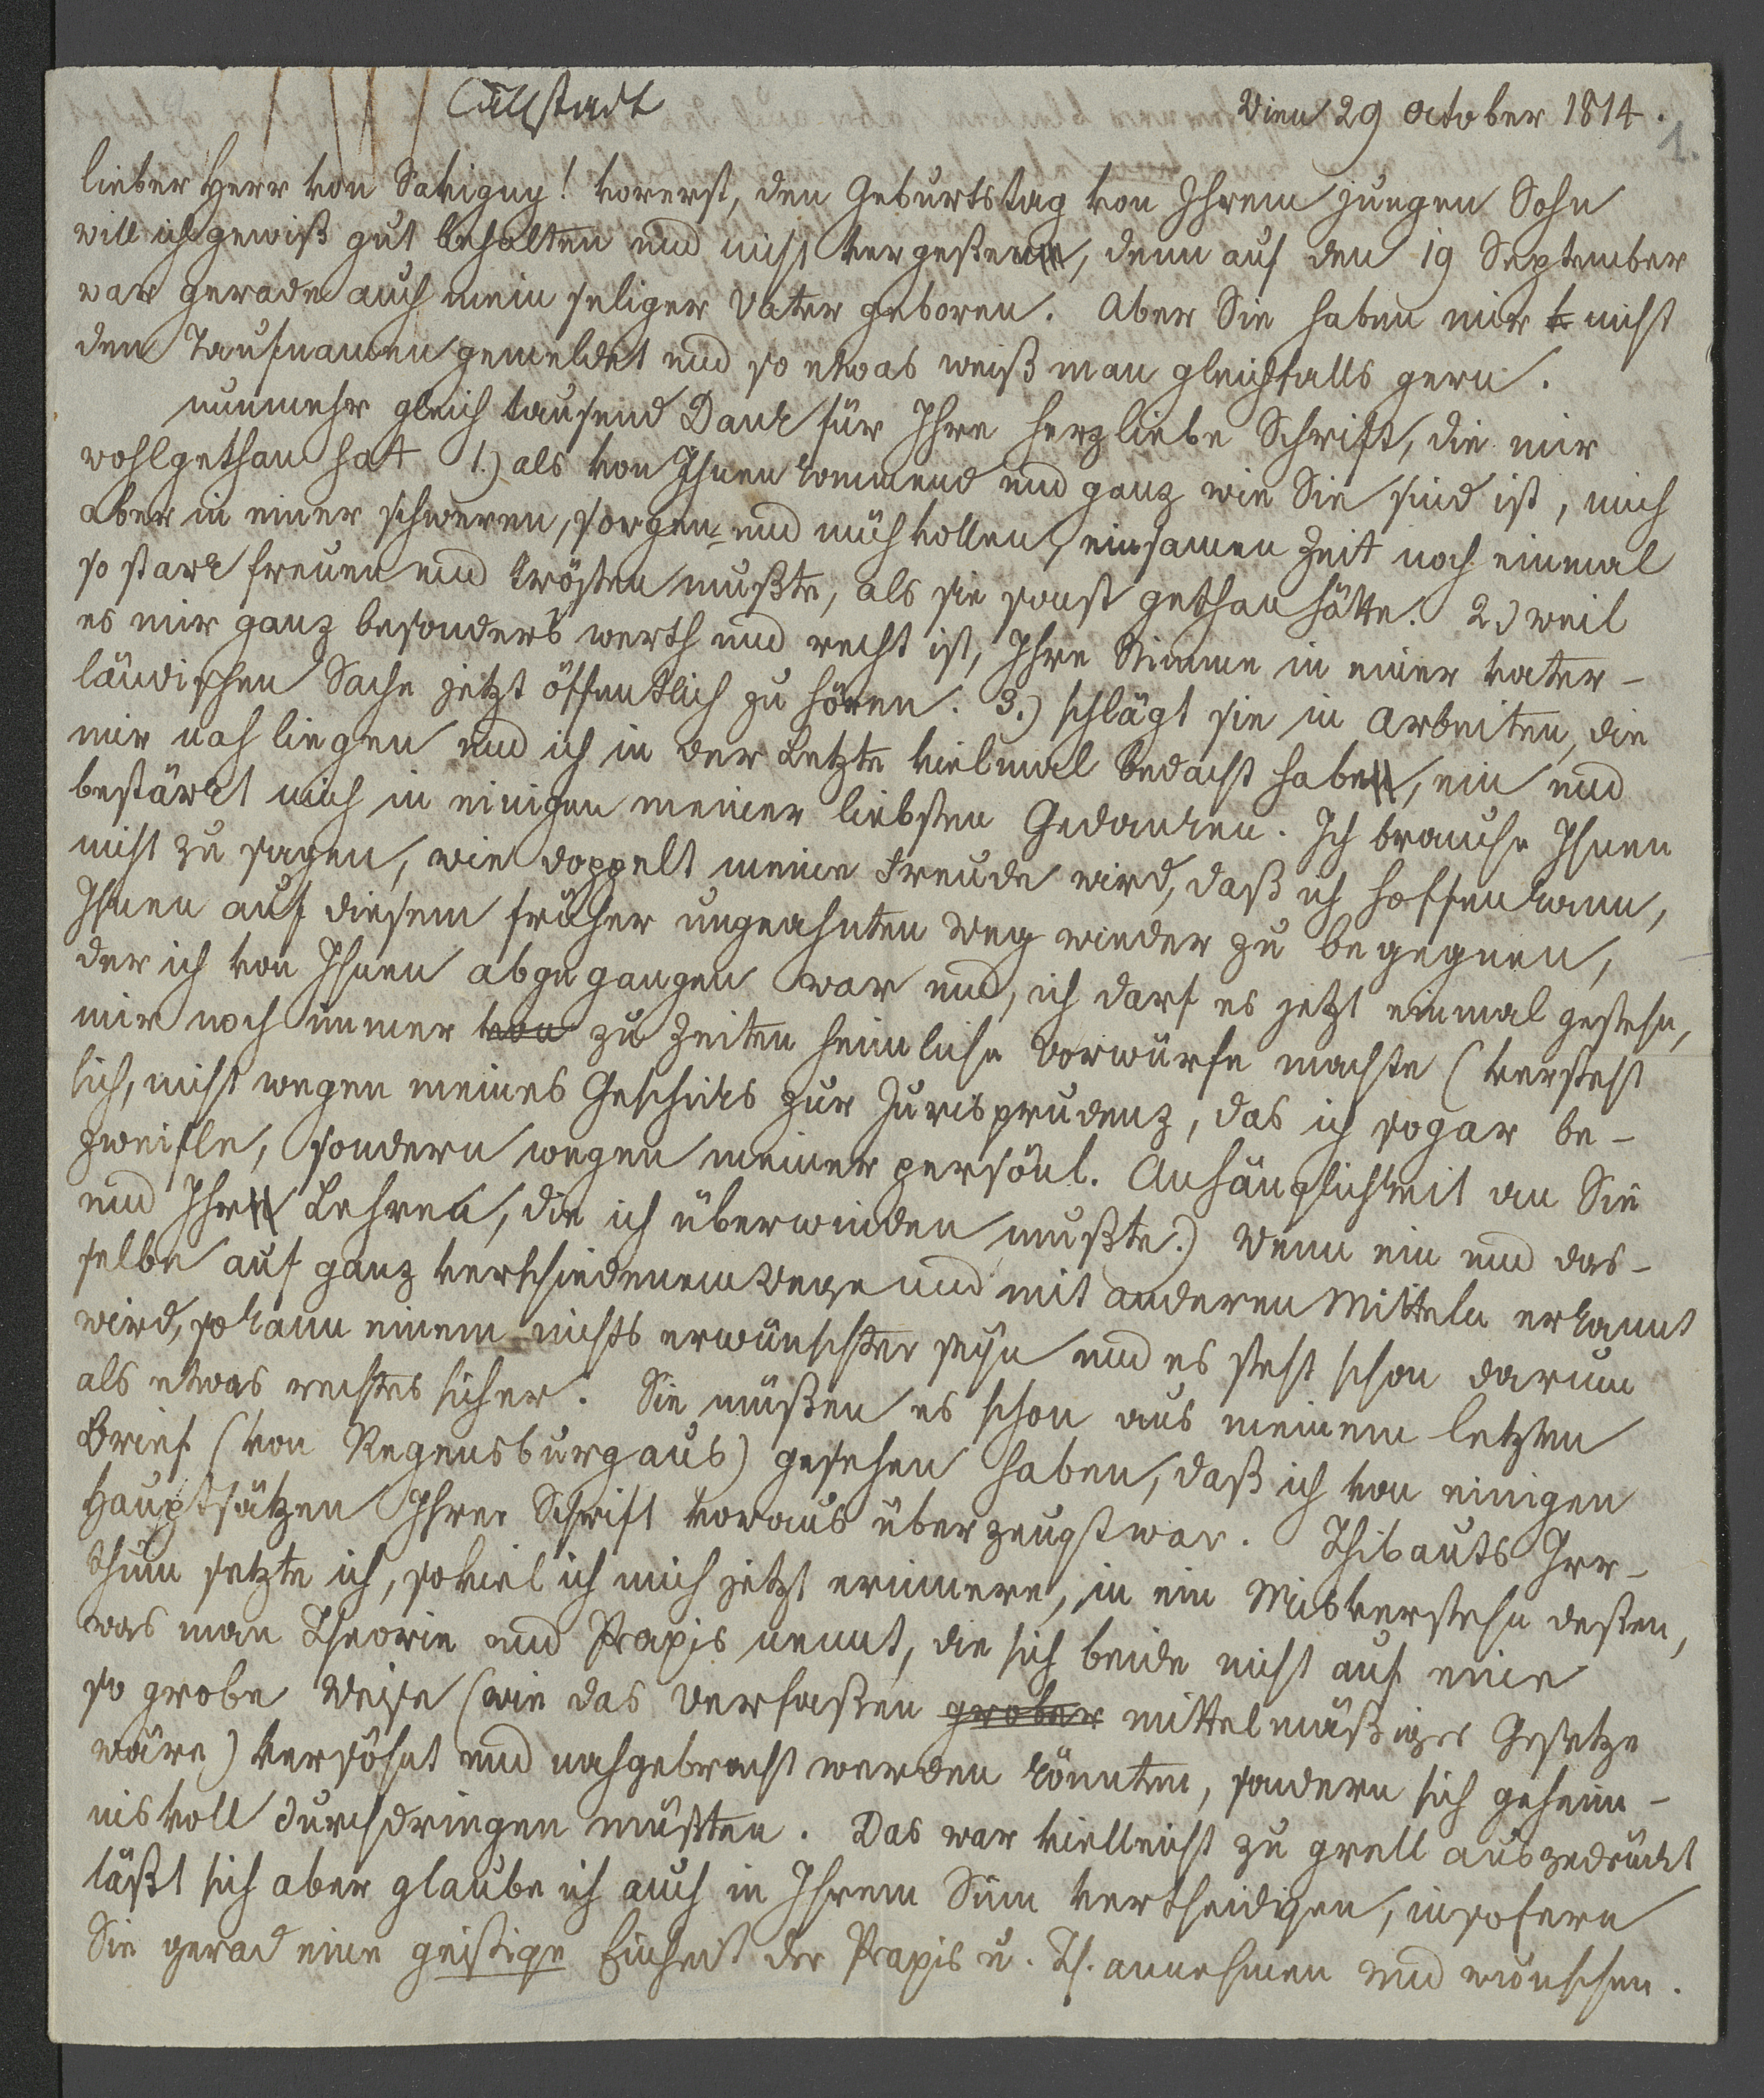 Cällstadt
Wien 29 October 1814.
1.
lieber Herr von Savigny! vorerst, den Geburtstag von Ihrem jungen Sohn
will ich gewiß gut behalten und nicht vergeßen, denn auf den 19 September
war gerade auch mein seliger Vater geboren. Aber Sie haben mir nicht
den Taufnamen gemeldet und so etwas weiß man gleichfalls gern.
nunmehr gleich tausend Dank für Ihre herzliebe Schrift, die mir
wohlgethan hat 1.) als von Ihnen kommend und ganz wie Sie sind ist, mich
aber in einer schweren, sorgen- und mühvollen, einsamen Zeit noch einmal
so stark freuen und trösten mußte, als sie sonst gethan hätte. 2.) weil
es mir ganz besonders werth und recht ist, Ihre Stimme in einer vater-
ländischen Sache jetzt öffentlich zu hören. 3.) schlägt sie in Arbeiten, die
mir nah liegen und ich in der Letzte vielmal bedacht habe, ein und
bestärkt mich in einigen meiner liebsten Gedanken. Ich brauche Ihnen
nicht zu sagen, wie doppelt meine Freude wird, daß ich hoffen kann,
Ihnen auf diesem früher ungeahnten Weg wieder zu begegnen,
der ich von Ihnen abgegangen war und, ich darf es jetzt einmal gestehn,
mir noch immer von zu Zeiten heimliche Vorwürfe machte (versteht
sich, nicht wegen meines Geschicks zur Jurisprudenz, das ich sogar be-
zweifle, sondern wegen meiner persönl. Anhänglichkeit an Sie
und Ihre Lehren, die ich überwinden mußte.) Wenn ein und das-
selbe auf ganz verschiedenem Wege und mit anderen Mitteln erkannt
wird, so kann einem nichts erwünschter seyn und es steht schon darum
als etwas rechtes sicher. Sie müßen es schon aus meinem letzten
Brief (von Regensburg aus) gesehen haben, daß ich von einigen
Hauptsätzen Ihrer Schrift voraus überzeugt war. Thibauts Irr-
thum setzte ich, soviel ich mich jetzt erinnere, in ein Misverstehn deßen,
was man Theorie und Praxis nennt, die sich beide nicht auf eine
so grobe Weise (wie das Verfaßen grober mittelmäßiger Gesetze
wäre) versöhnt und nachgebracht werden könnten, sondern sich geheim-
nisvoll durchdringen müßten. Das war vielleicht zu grell ausgedrückt
läßt sich aber glaube ich auch in Ihrem Sinn vertheidigen, insofern
Sie gerad eine geistige Einheit der Praxis u. Th. annehmen und wünschen.